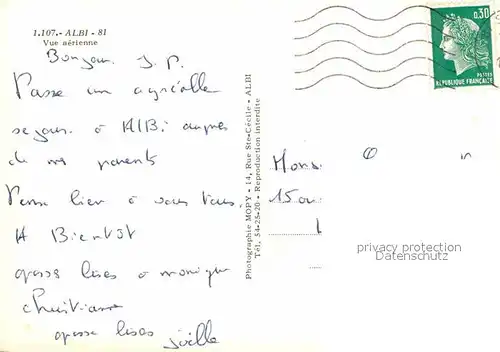 1.107.- ALBI - 81
Vue aérienne
Bonjour J. P.
Passe un agréable
sejour à AlBi auprès
de nos parents
Pense bien à vous tous.
A Bientôt
grosse bises à monique
christiane
grosse bises joëlle
Photographie MOPY - 14, Rue Ste-Cécile - ALBI
Tél. 54-25-20 - Reproduction interdite
0,30
POSTES
REPUBLIQUE FRANÇAISE
Mons
15
privacy protection
Datenschutz